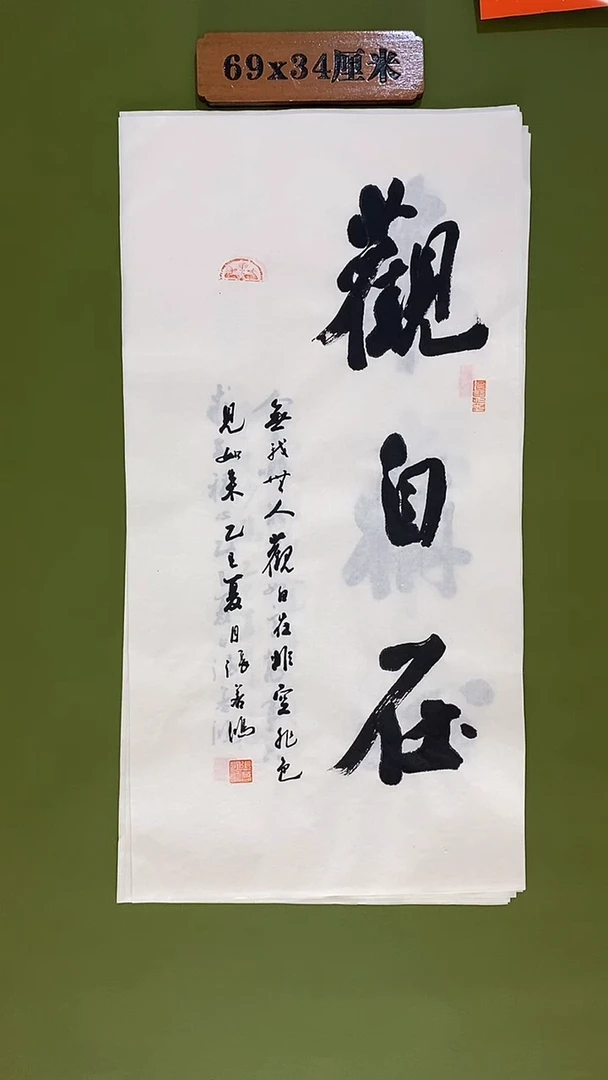 69x34厘米
觀自在
無我無人觀自在非空非色
見如來乙巳夏月張